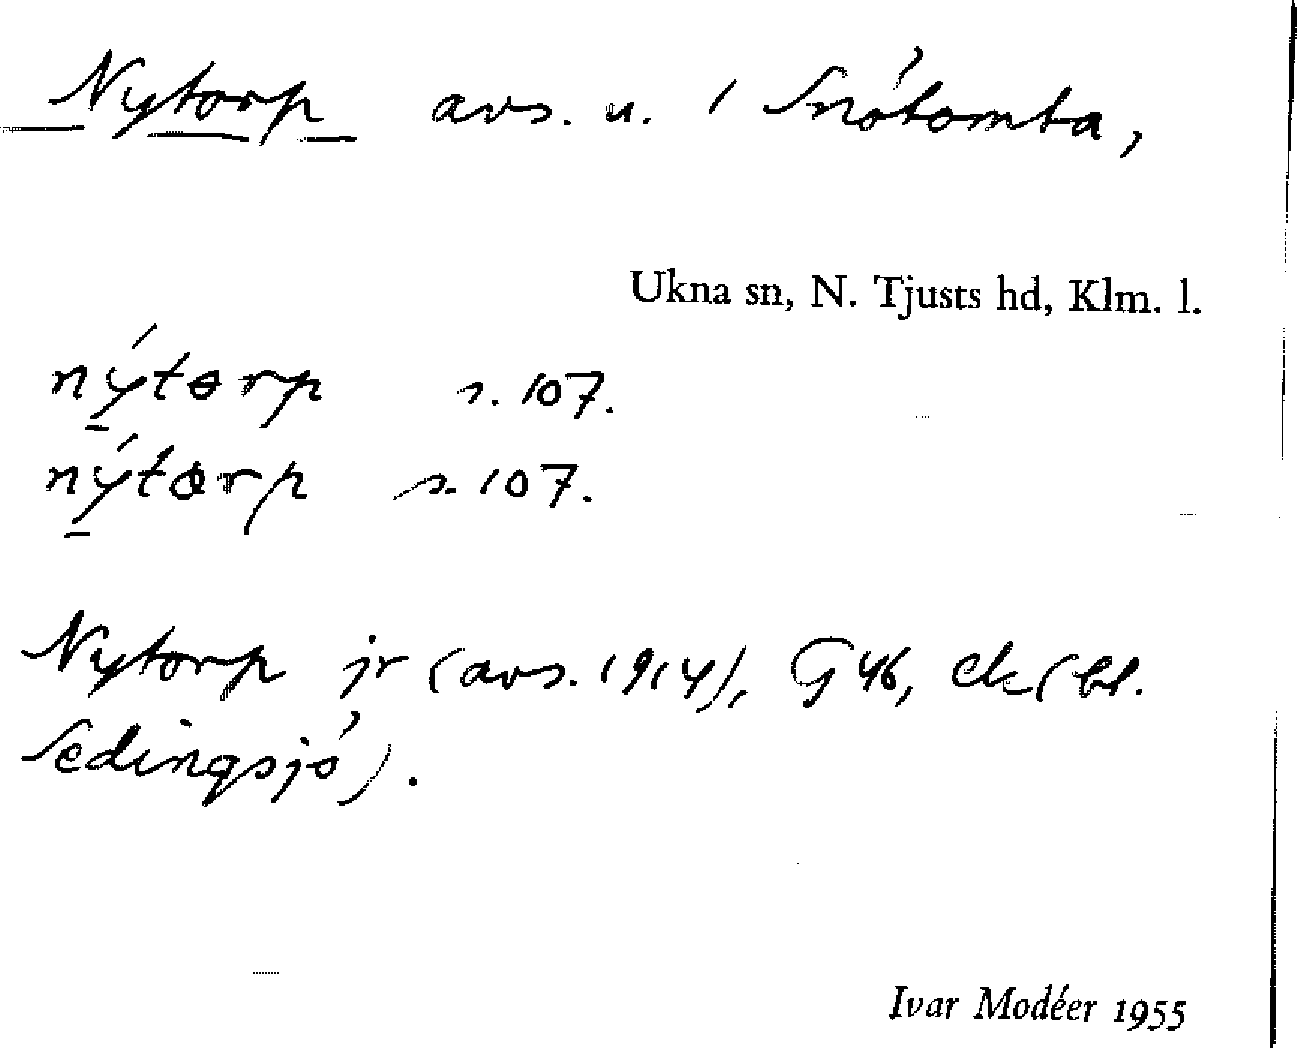 Nytorp avs. u. 1 Snötomta,
Ukna sn, N. Tjusts hd, Klm. l.
nýtorp s. 107.
nýtorp s. 107.
Nytorp jr (avs. 1914), G 46, ek (bl.
Sedingsjö).
Ivar Modéer 1955